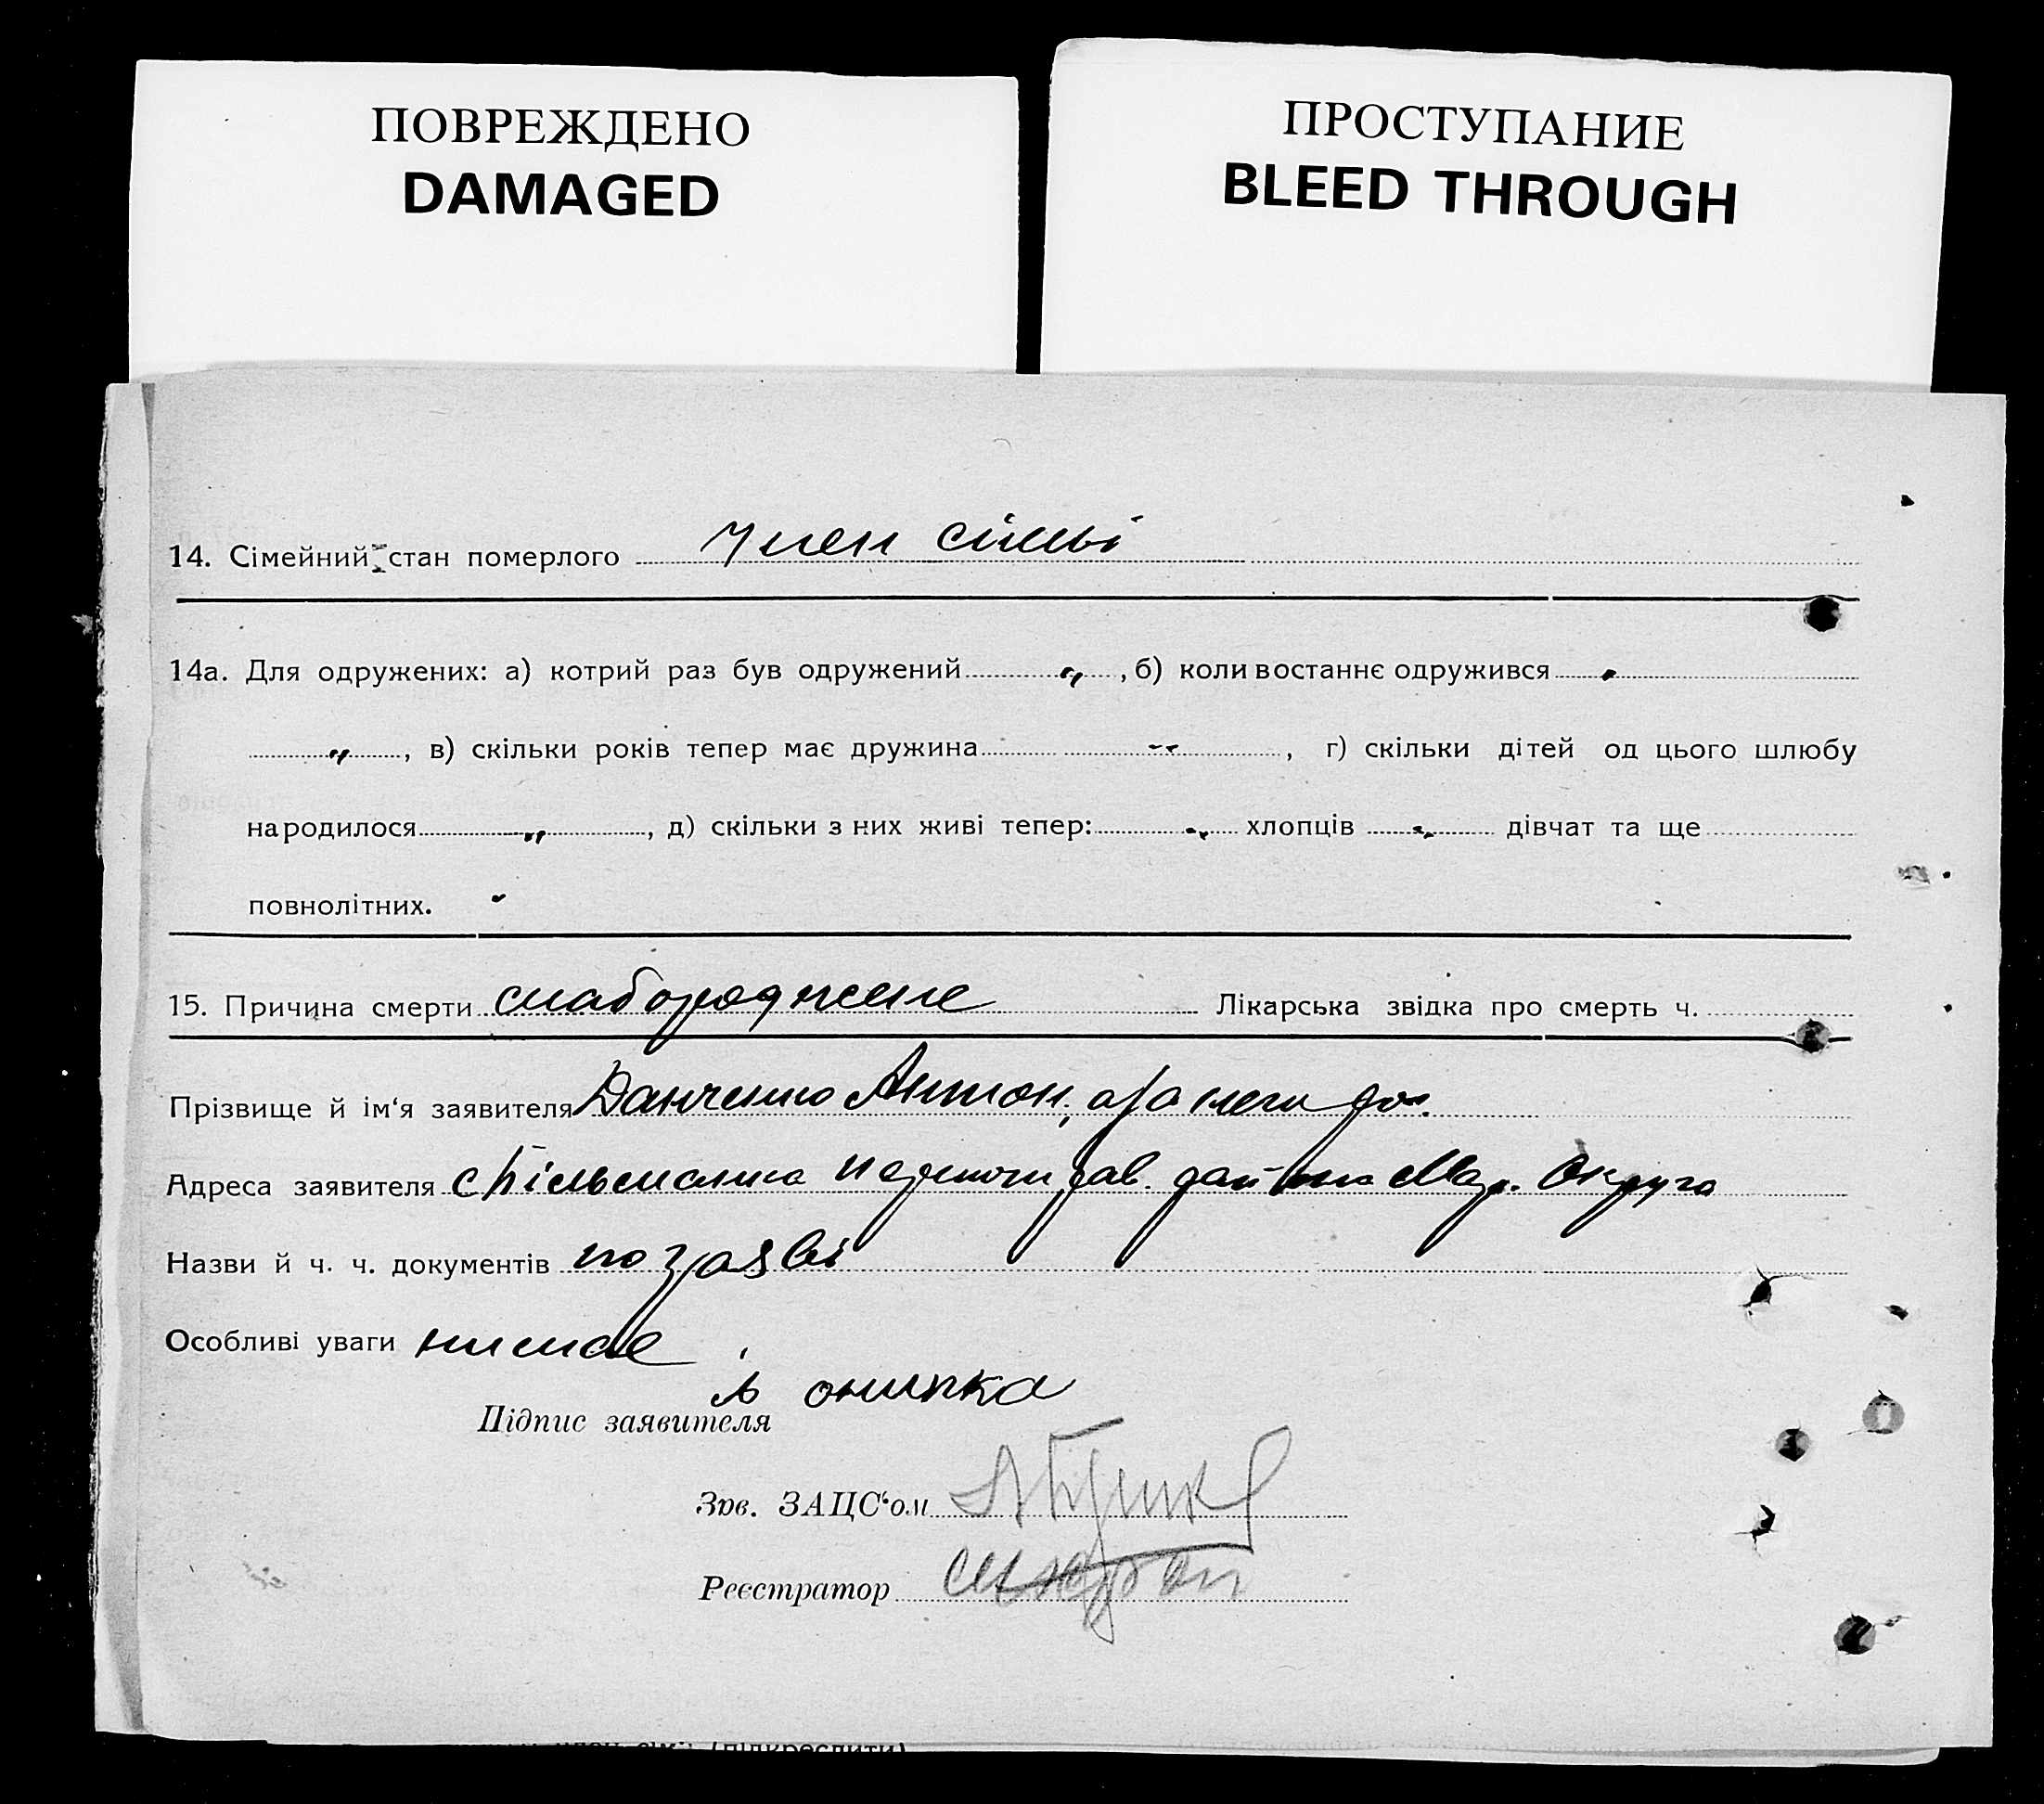 ПОВРЕЖДЕНО
DAMAGED
ПРОСТУПАНИЕ
BLEED THROUGH
14. Сімейний стан померлого член сімьі
14а. Для одружених: а) котрий раз був одружений „ , б) коли востаннє одружився „
„ , в) скільки років тепер має дружина „ , г) скільки дітей од цього шлюбу
народилося „ , д) скільки з них живі тепер: „ хлопців „ дівчат та ще
повнолітних. „
15. Причина смерти слаборождене Лікарська звідка про смерть ч.
Прізвище й ім‘я заявителя Данченко Антон,
Адреса заявителя с Мар. Округа
Назви й ч. ч. документів по заяві
Особливі уваги нимае
Підпис заявителя
Зав. ЗАЦС‘ом
Реєстратор
член сім'ї (підкреслити)